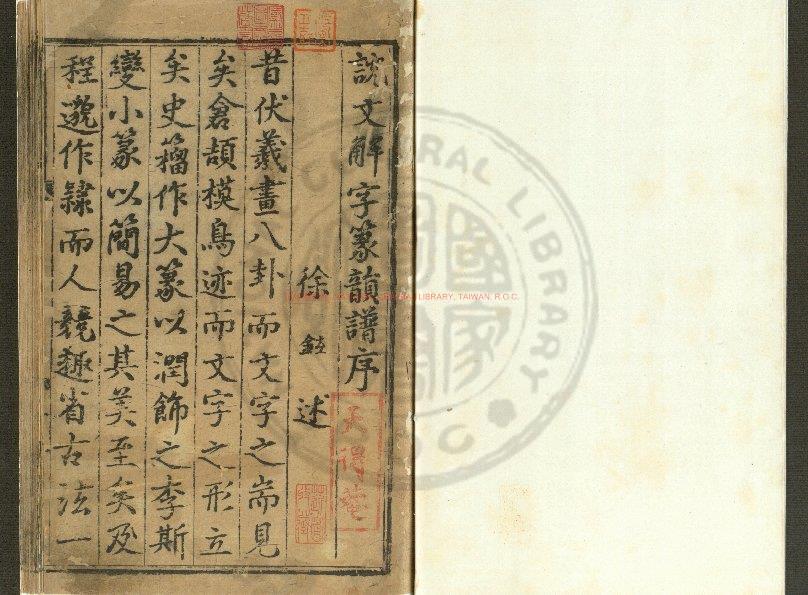 說文解字篆韻譜序
徐鉉述
昔伏羲畫八卦而文字之耑見
矣倉頡模鳥迹而文字之形立
矣史籀作大篆以潤飾之李斯
變小篆以簡易之其美至矣及
程邈作隸而人競趣省古法一
天得菴
LIBRARY, TAIWAN, R.O.C.